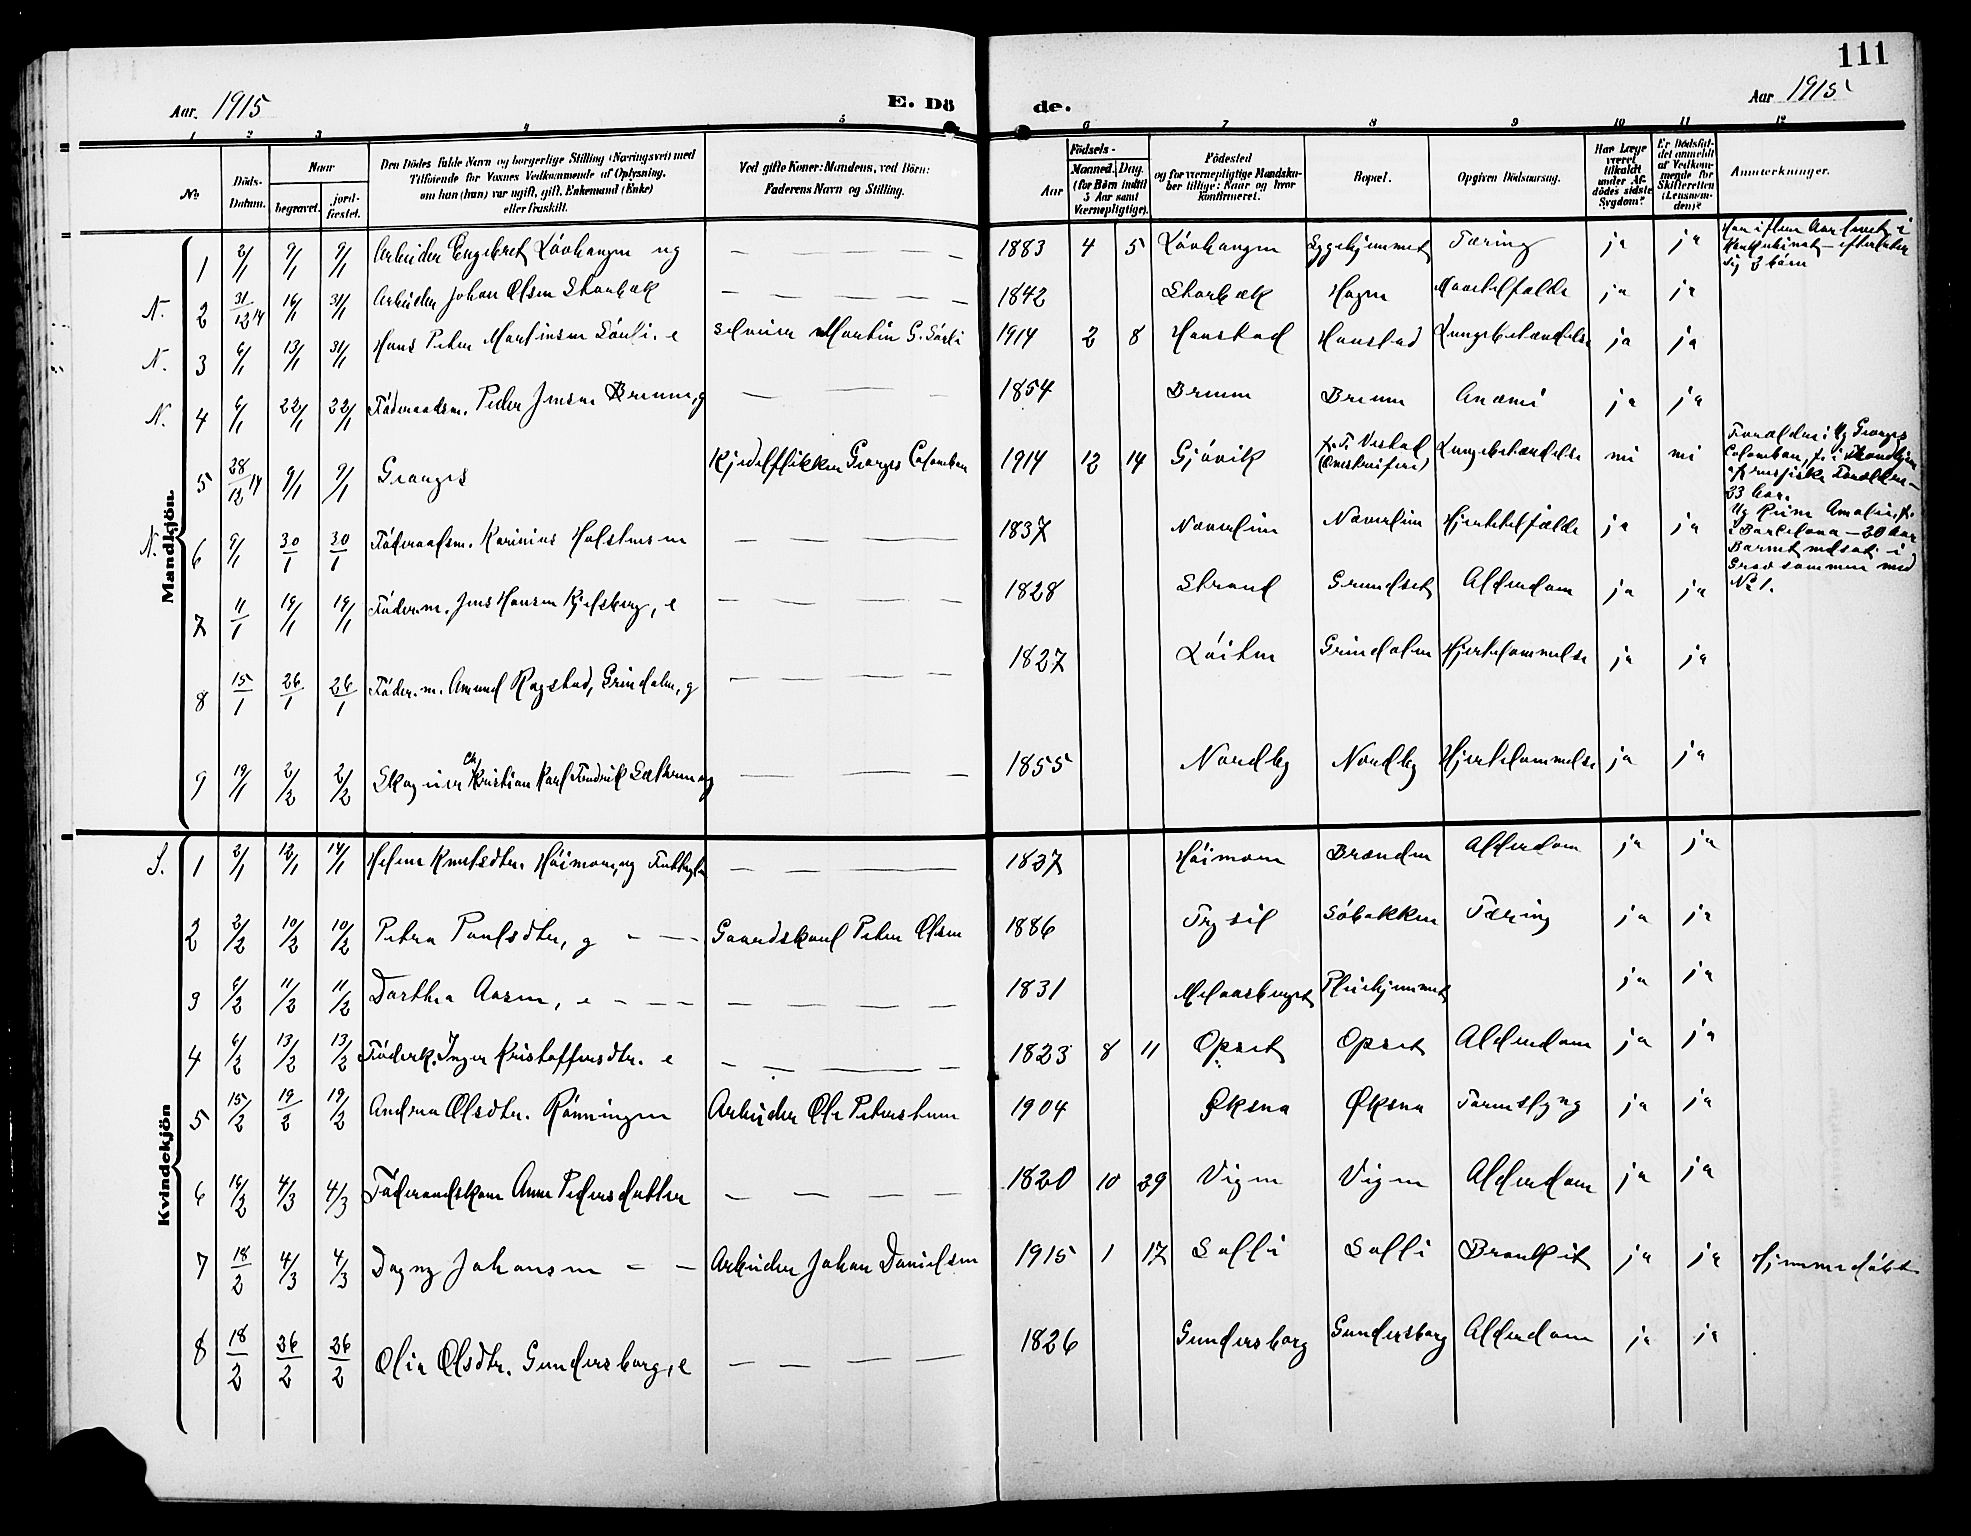 111
Aar. 1915
E. Dö
de.
Aar 1915
1 2 3 4 5 6 7 8 9 10 11 12
No
Döds-Datum.
Naar
begravet.
jord-fæstet.
Den Dödes fulde Navn og borgerlige Stilling (Næringsvei) med
Tilföiende for Voxnes Vedkommende af Oplysning,
om han (hun) var ugift, gift, Enkemand (Enke)
eller fraskilt.
Ved gifte Koner: Mandens, ved Börn:
Faderens Navn og Stilling.
Aar
Födsels-
Maaned. Dag.
(for Börn indtil
5 Aar samt
Værnepligtige).
Födested
og for værnepligtige Mandska-
ber tillige: Naar og hvor
konfirmeret.
Bopæl.
Opgiven Dödsaarsag.
Har Læge
været
tilkaldt
under Af-
dödes sidste
Sygdom?
Er Dödsfal-
det anmeldt
af Vedkom-
mende for
Skifteretten
(Lensman-
den)?
Anmærkninger.
Mandkjön.
1 2/1 9/1 9/1 Arbeider Engebret Lövhaugen ug — — — 1883 4 5 Lövhaugen Sygehjemmet Tæring ja ja
N. 2 31/12 14 16/1 31/1 Arbeider Johan Olsen Skorbæk — — — — — 1842 Skorbæk Hagen ja ja
N. 3 6/1 13/1 31/1 Hans Peter Martinsen Sörli. e Martin G. Sörli 1914 2 8 Hanstad Hanstad Lungebetændelse ja ja
N. 4 6/1 22/1 22/1 Föderaadsm. Peder Jensen Brenn, g — — — 1854 Brenn Brenn Anæmi ja ja
5 28/12 14 9/1 9/1 Georges Kjedelflikker Georges Colomban 1914 12 14 Gjövik Lungebetændelse nei nei
Georges
Colomban,
33 Aar.
Barcelona — 20 Aar
Barnet nedsat i
Grav sammen med
No 1.
N. 6 9/1 30/1 30/1 Föderaadsm. Karinius Halstensen — — — — 1837 Næverlien Næverlien Hjerteslfælde ja ja
7 11/1 19/1 19/1 Föder.m. Jens Hansen Kjelsberg, e — — — — 1828 Strand Grundset Alderdom ja ja
8 15/1 26/1 26/1 Föder.m. Amund Rogstad, Grindalen, g — — — — 1827 Löiten Grindalen Hjertelammelse ja ja
9 19/1 2/2 2/2 Kristian Karl Fredrik Sætheren g — — — — 1855 Nordby Nordby Hjertelammelse ja ja
Kvindekjön
S. 1 2/1 12/1 14/1 Helene Knudsdtr. Höimoen, ug — — — — 1837 Höimoen Brænden Alderdom ja ja
2 2/2 10/2 10/2 Petra Paulsdtr, g — — Gaardskarl Peter Olsen 1886 Trysil Söbakken Tæring ja ja
3 6/2 11/2 11/2 Dorthea Aasen, e — — — — — — 1831 Pleiehjemmet ja ja
4 6/2 13/2 13/2 Föderk. Inger Kristoffersdtr. e — — — — — 1823 8 11 Opset Opset Alderdom ja ja
5 15/2 19/2 19/2 Andrea Olsdtr. Rönningen Arbeider Ole Peterstuen 1904 Øksna Øksna Tarmslyng ja ja
6 16/2 4/3 4/3 Föderaadskone Anne Pedersdatter — — — — 1820 10 29 Vigen Vigen Alderdom ja ja
7 18/2 4/3 4/3 Dagny Johansen — — Arbeider Johan Danielsen 1915 1 17 Solli Solli Bronkit ja ja Hjemmedöbt
8 18/2 26/2 26/2 Olia Olsdtr. Gundersborg, e — — — — 1826 Gundersborg Gundersborg Alderdom ja ja